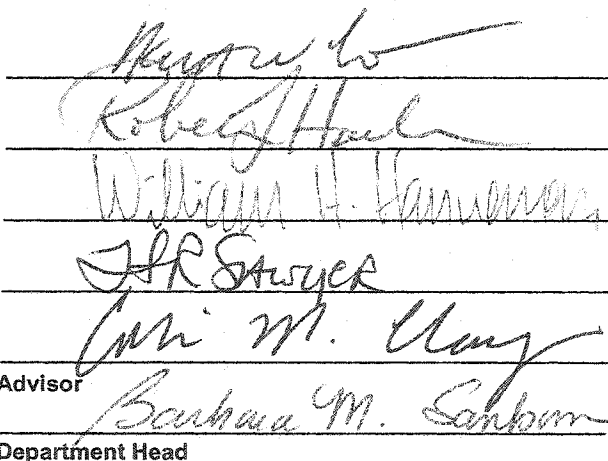 Robert
William H. Hanneman
Sawyer
Colin M. Clay
Advisor
Barbara M. Sanborn
Department Head